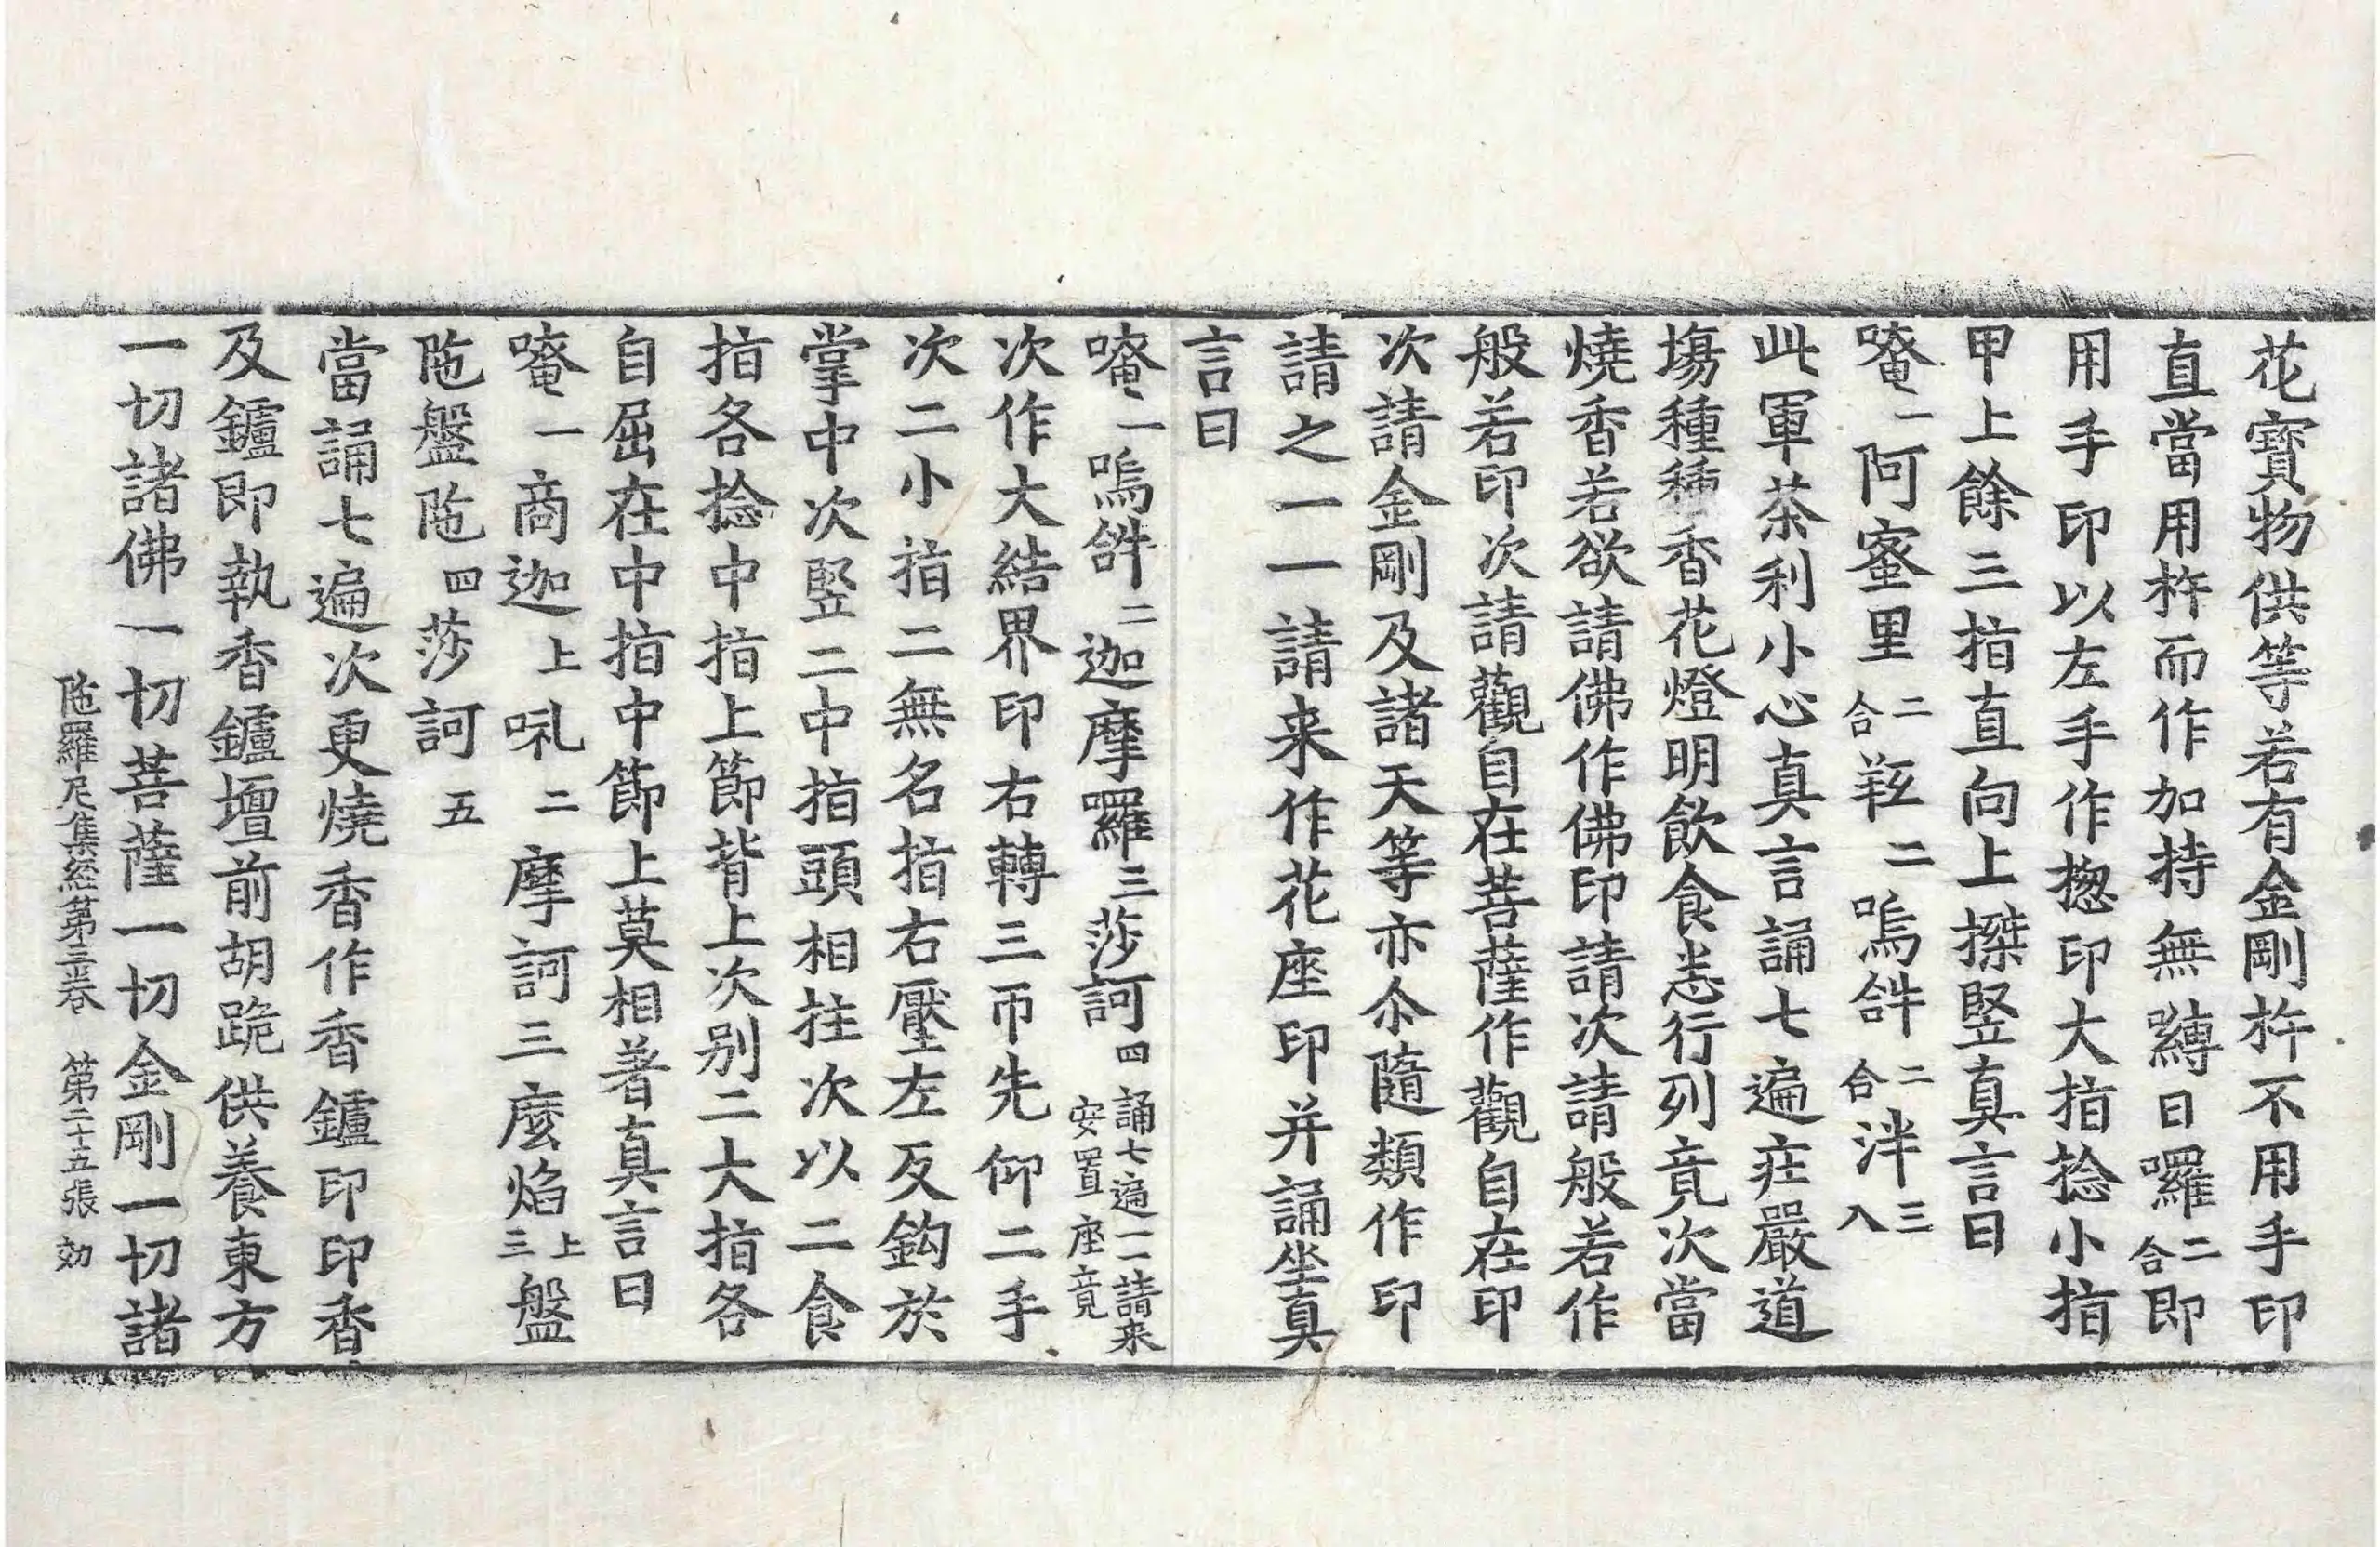 花寳物供等若有金剛杵不用手印
直當用杵而作加持無縛日囉二合即
用手印以左手作揔印大指捻小指
甲上餘三指直向上搩竪真言曰
唵一阿蜜里二合𦍑二嗚𤙖二合泮三入
此軍茶利小心真言誦七遍莊嚴道
場種種香花燈明飲食悉行列竟次當
燒香若欲請佛作佛印請次請般若作
般若印次請觀自在菩薩作觀自在印
次請金剛及諸天等亦尒隨類作印
請之一一請来作花座印并誦坐真
言曰
唵一嗚𤙖二迦摩羅三莎訶四誦七遍一一請来安置座竟
次作大結界印右轉三帀先仰二手
次二小指二無名指右壓左反鈎於
掌中次竪二中指頭相拄次以二食
指各捻中指上節背上次别二大指各
自屈在中指中節上莫相著真言曰
唵一商迦上𠯆二摩訶三麼焰上三盤
陁盤陁四莎訶五
當誦七遍次更燒香作香鑪印印香
及鑪即執香鑪壇前胡跪供養東方
一切諸佛一切菩薩一切金剛一切諸
陁羅尼集經第三卷　第二十五張　効